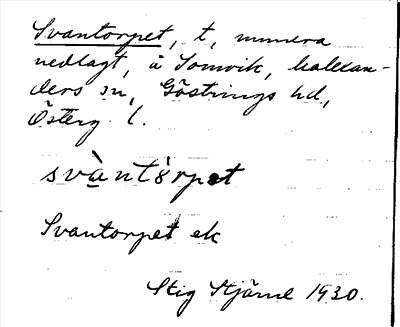 Svantorpet, t, numera
nedlagt, å Tomvik,
ders sn, Göstrings hd,
Österg l.
svàntòrpet
Svantorpet ek
Stig Stjärne 1930.